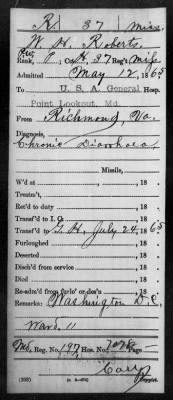 R 37 Miss.
W. H. Roberts
Rank, Pvt Co. H. 37 Reg't Miss
Admitted May 12, 1865
To U. S. A. General Hosp.
Point Lookout, Md.
From Richmond, Va.
Diagnosis,
Chronic Diarrhoea
Missile,
W'd at , 18
Treatm't,
Ret'd to duty , 18
Transf'd to I. G. , 18
Transf'd to G. H. July 24, 1865
Furloughed , 18
Deserted , 18
Disch'd from service , 18
Died , 18
Re-adm'd from furlo' or des'n , 18
Remarks: Washington D.C.
Ward. 11
Md. Reg. No. 197; Hos. No. 7078; Page —
Copyist.